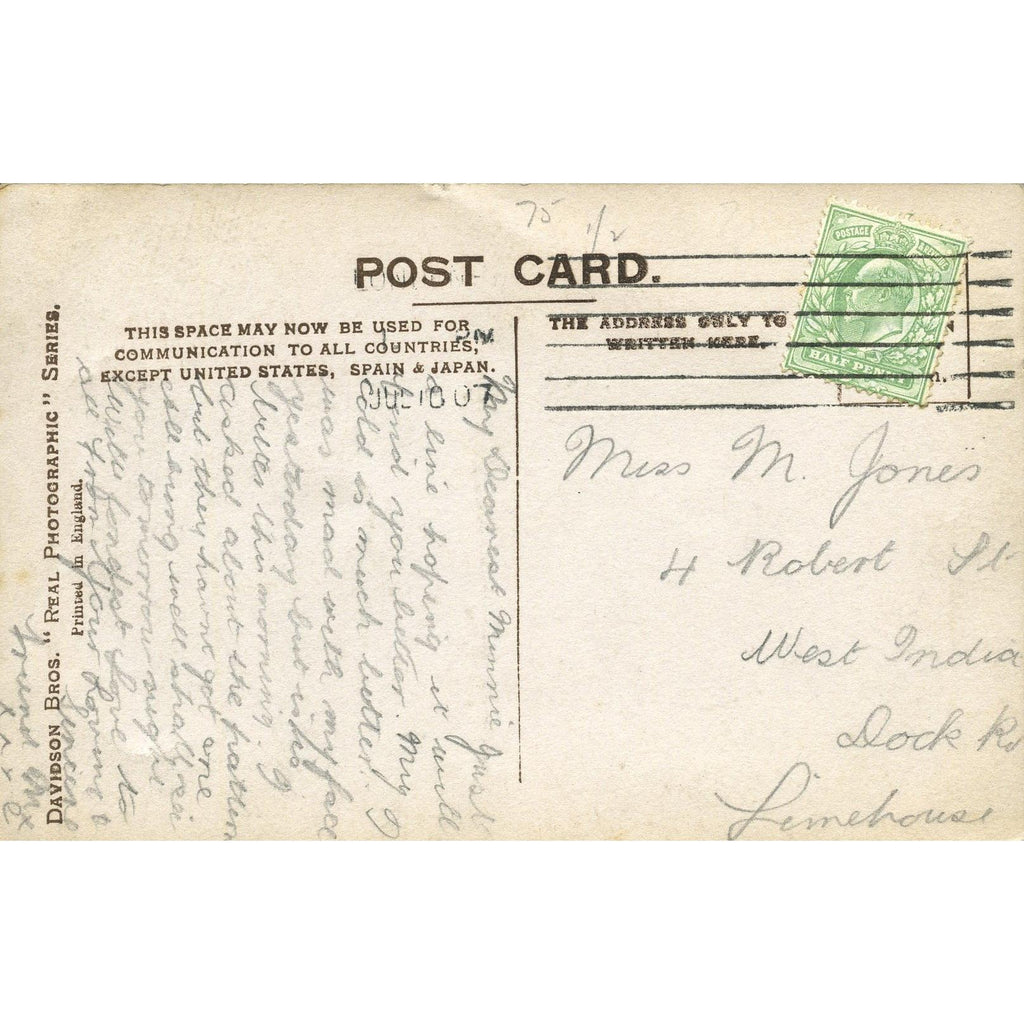 75
1/2
POST CARD.
THIS SPACE MAY NOW BE USED FOR
COMMUNICATION TO ALL COUNTRIES,
EXCEPT UNITED STATES, SPAIN & JAPAN.
THE ADDRESS ONLY TO
WRITTEN HERE.
POSTAGE
HALF PENNY
PM
JUL 10 07
DAVIDSON BROS. "REAL PHOTOGRAPHIC" SERIES.
Printed in England.
My Dearest Minnie Just
a line hoping it will
find you better. My
cold is much better. I
was mad with my face
yesterday but is
better this morning. I
asked about the pattern
but they havnt got one
all being well shall see
you tomorrow night
With fondest Love to
all from Your Loving
Friend
Miss M. Jones
4 Robert St
West India
Dock Rd
Limehouse